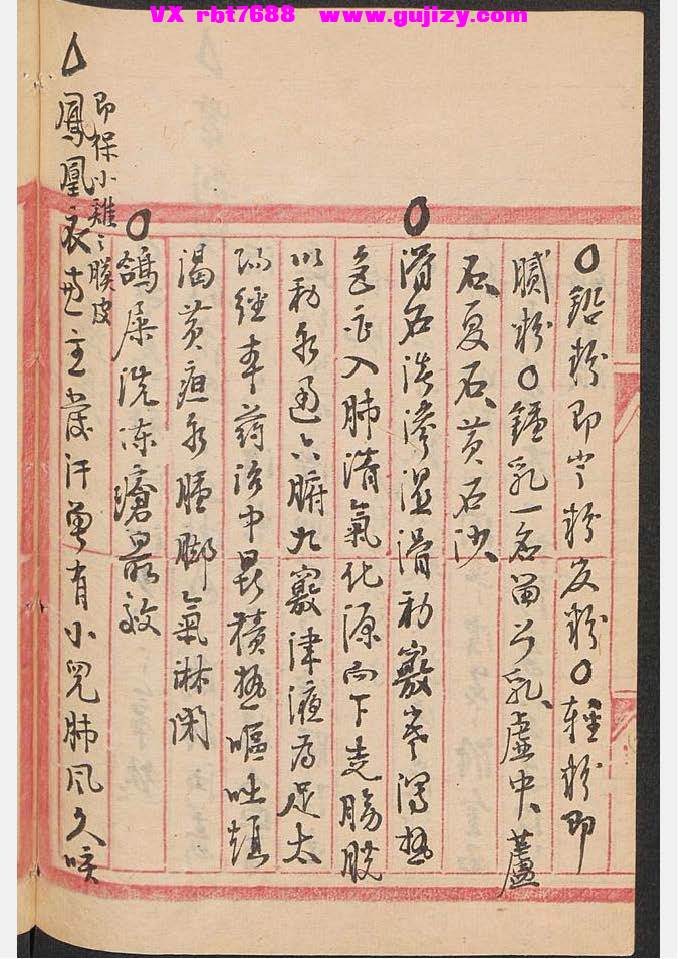 VX rbt7688 www.gujizy.com
〇鉛粉即官粉定粉〇輕粉即
膩粉〇鍾乳一名留公乳、虛中、蘆
石、夏石、黃石沙、
〇滑石淡滲濕滑利竅
入肺清氣化源而下走膀胱
以利水通六腑九竅津液為足太
陽經本藥治中暑積熱嘔吐煩
渴黃疸水腫脚氣淋閉
〇鴿屎洗凍瘡最效
△鳳凰衣 主 汗 有小兒肺风久咳
即保小雞之膜皮